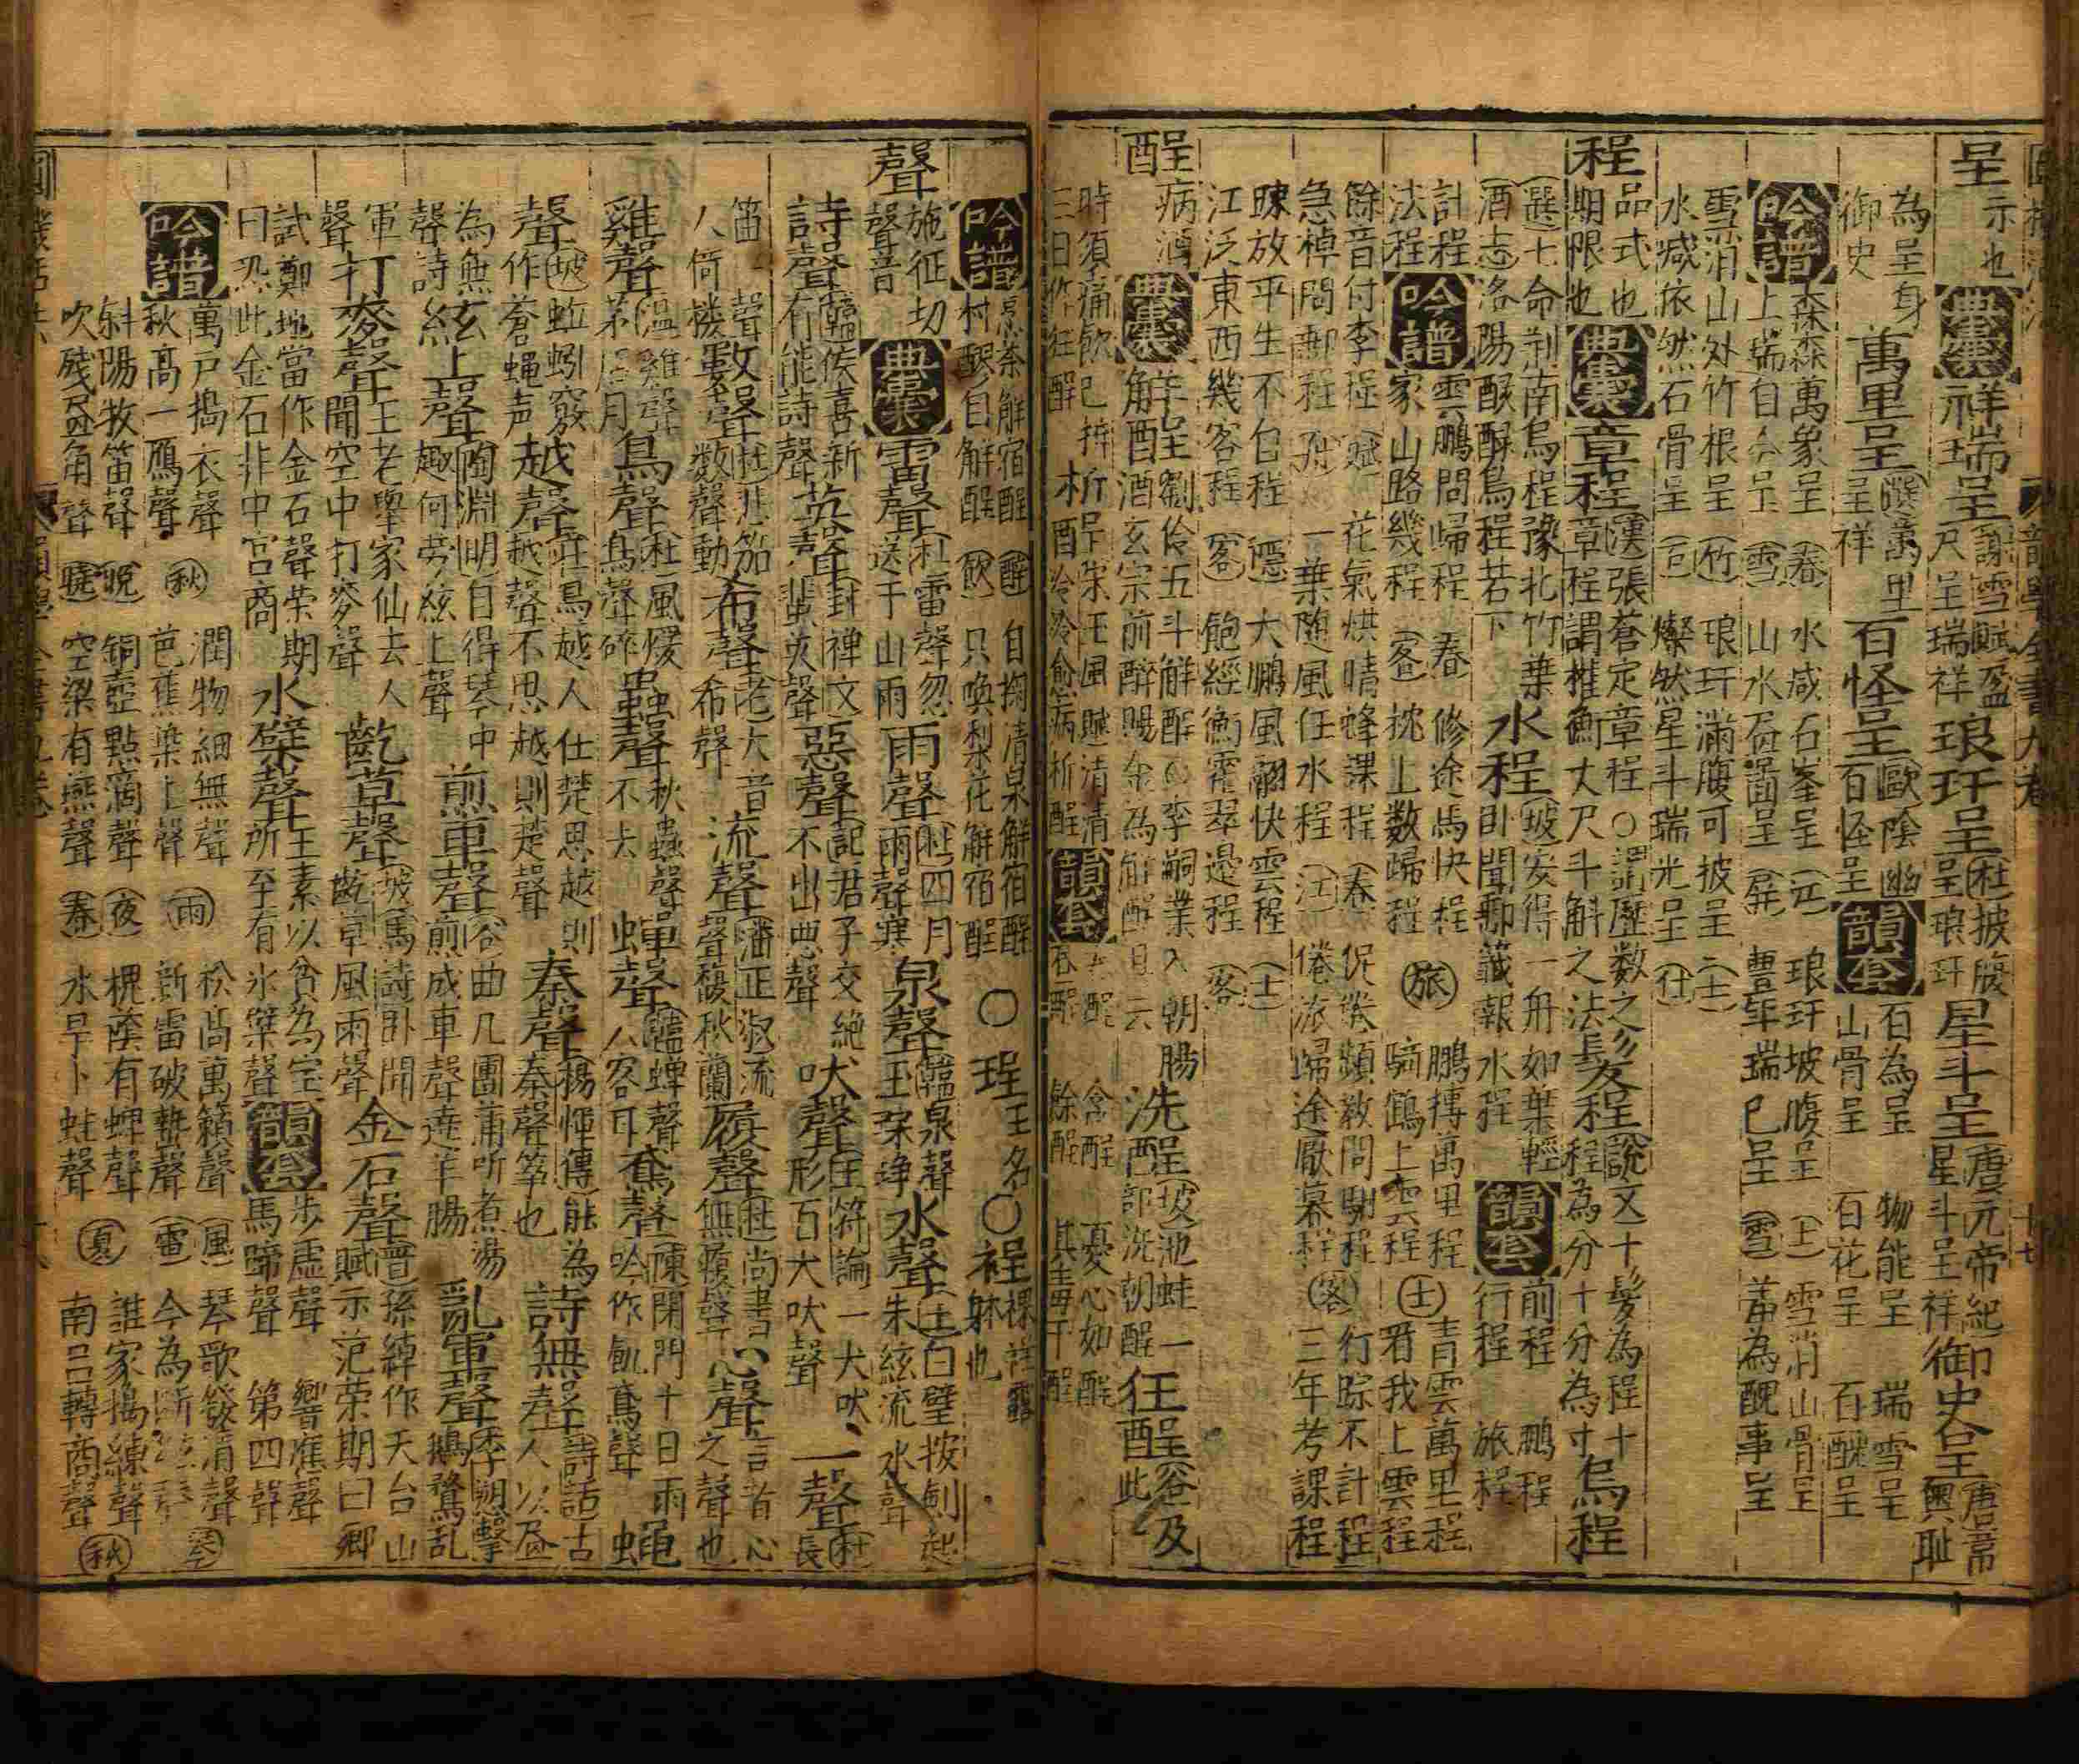 呈
示也
典囊
祥瑞呈
謝雪賦盈
尺呈瑞祥
琅玕呈
杜披腹
呈琅玕
星斗呈
唐元帝紀
星斗呈祥
御史呈
唐常
輿恥
為呈身
御史
萬里呈
選萬里
呈祥
百怪呈
歐陰幽
百怪呈
韻套
石為呈
山骨呈
物能呈
石花呈
瑞雪呈
百醜呈
吟譜
森森萬象呈
春
水咸石峯呈
琅玕坡腹呈
士
雪消山骨呈
上瑞自今呈
雪
屏
豐年瑞已呈
雪
黃為醜事呈
雪消山外竹根呈
竹
琅玕滿腹可披呈
士
水减依然石骨呈
燦然星斗瑞光呈
仕
程
品式也
期限也
典囊
章程
漢張蒼定章程
章程謂權衡丈尺斗斛之法
髮程
說文十髮為程十
程為分十分為寸
烏程
選七命荆南烏程豫北竹葉
酒志洛陽酴醾烏程若下
水程
坡安得一舟如葉輕
卧聞郵籤報水程
韻套
前程
行程
鵬程
旅程
計程
法程
吟譜
雲鵬問歸程
春
修途馬快程
旅
鵬摶萬里程
士
青雲萬里程
家山路幾程
客
枕上数歸程
騎鶴上雲程
看我上雲程
餘音付李程
賦
花氣烘晴蜂課程
春
行踪不計程
急棹問郵程
舟
一葉随風任水程
江
倦旅歸途厭暮程
客
三年考課程
踈放平生不自程
隱
大鵬風翮快雲程
士
江泛東西幾客程
客
飽經衡霍翠邊程
客
酲
病酒
典囊
解酲
羊呈劉伶五斗解酲
李嗣業入朝腸
酒玄宗前醉賜金為解酲
洗酲
坡池蛙一
部洗朝酲
狂酲
谷及
此
時須痛飲
三日作狂酲
析酲
宋玉風賦清清
泠泠愈病析酲
韻套
含酲
餘酲
憂心如酲
吟譜
惡茶解宿酲
醒
自掬清泉解宿酲
村醪自解酲
飲
只喚梨花解宿酲
○珵
玉名
○裎
裸裎露
躰也
聲
施征切
聲音
典囊
雷聲
杜雷聲忽
送千山雨
雨聲
杜四月
雨聲寒
泉聲
韞泉聲
玉琹琤
水聲
白璧按劍起
朱絃流水聲
詩聲
韞侯喜新
有能詩聲
英聲
封禪文
蜚英聲
惡聲
記君子交絶
不出惡聲
吠聲
王符論一犬吠
形百犬吠聲
一聲
杜
長
笛一聲
人倚樓
數聲
杜悲笳
数聲動
希聲
老大音
希聲
流聲
潘正淑流
聲馥秋蘭
履聲
杜尚書
無履聲
心聲
言者心
之聲也
雞聲
溫雞聲
茅店月
鳥聲
杜風煖
鳥聲碎
蟲聲
秋蟲聲
不去
蟬聲
韞蟬聲
人客耳
鴦聲
陳閉門十日雨
吟作飢鳶聲
蠅
聲
坡蚯蚓竅
作蒼蝇声
越聲
荘舄越人仕楚思越則
越聲不思越則楚聲
秦聲
楊惲傳能為
秦聲筝也
詩無聲
詩話古
人以昼
為無
聲詩
絃上聲
陶淵明自得琴中
趣何労絃上聲
煎車聲
谷曲几團蒲听煮湯
煎成車聲遶羊腸
亂軍聲
李愬擊
鵝鶩乱
軍
聲
打麥聲
王老舉家仙去人
聞空中打麥聲
齕草聲
坡馬詩卧聞
齕草風雨聲
金石聲
晉孫綽作天台山
賦示范荣期曰卿
試鄭地當作金石聲荣期
曰恐此金石非中宮商
水檗聲
王素以貧為宝
所至有氷檗聲
韻套
步虛聲
馬蹄聲
響應聲
第四聲
吟譜
萬戸搗衣聲
秋
潤物細無聲
雨
松高萬籟聲
風
琴歌發清聲
琴
秋高一鴈聲
芭蕉葉上聲
新雷破蟄聲
雷
斜陽牧笛聲
晚
銅壺點滴聲
夜
槐蔭有蟬聲
夏
誰家搗練聲
秋
吹殘孟角聲
曉
空梁有燕聲
春
水旱卜蛙聲
南呂轉商聲